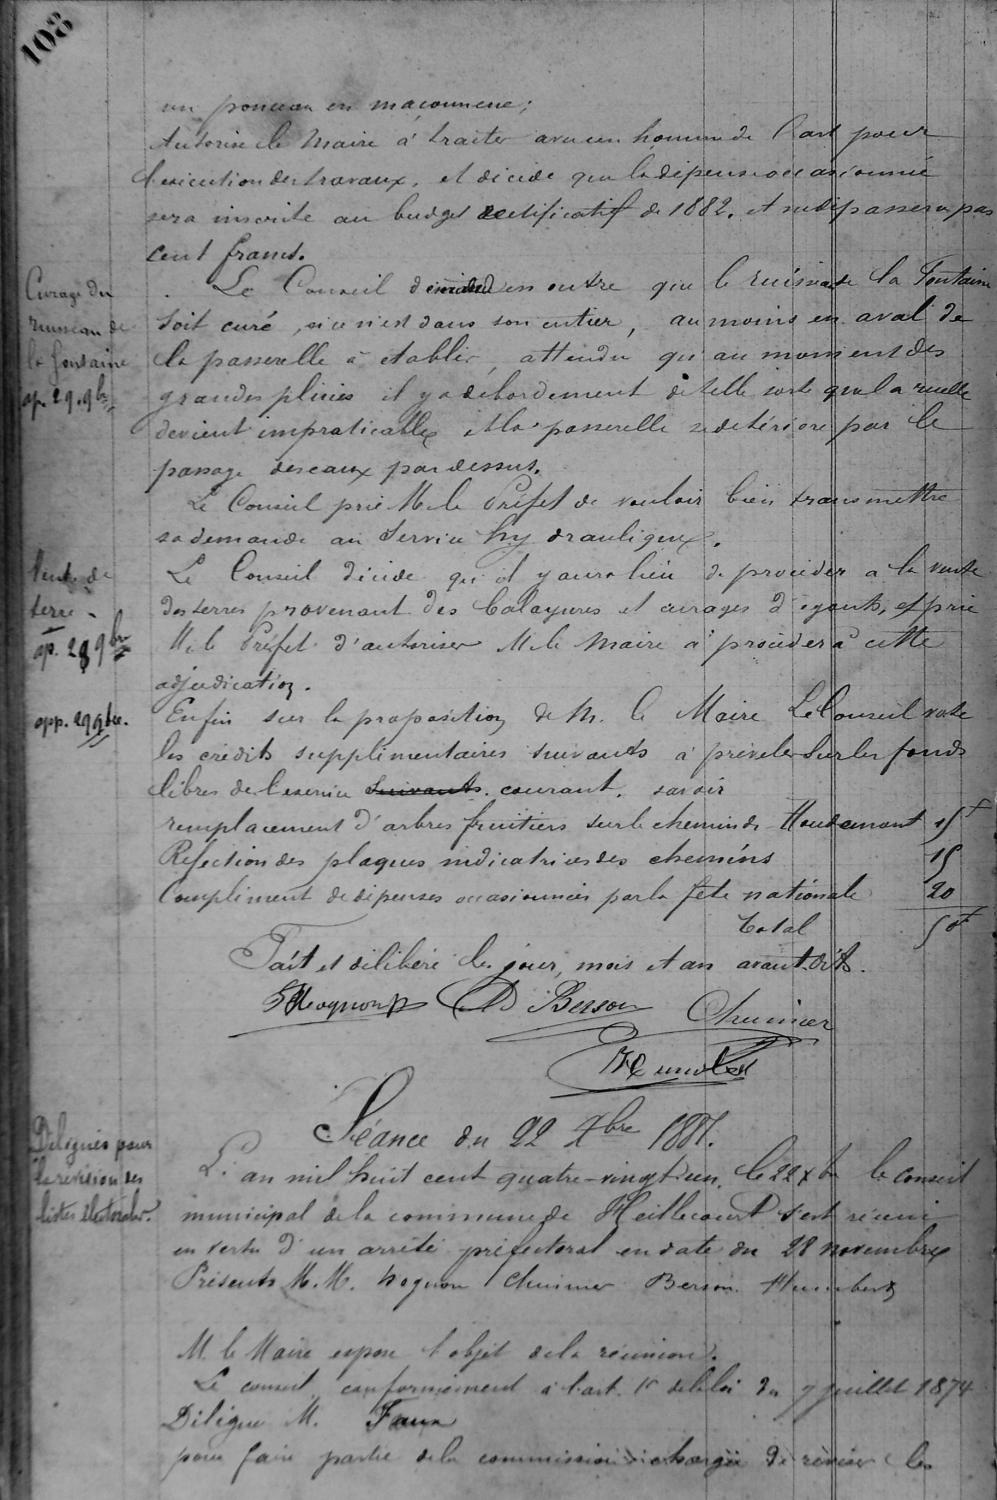 108
un ponceau en maçonnerie;
Autorise le Maire à traiter avec un homme de l'art pour
l'exécution des travaux, et décide que la dépense occasionnée
sera inscrite au budget rectificatif de 1882, et ne dépassera pas
cent francs.
Curage du
ruisseau de
la fontaine
ap. 29. 9bre
Le Conseil demande en outre que le ruisseau de la Fontaine
soit curé, si ce n'est dans son entier, au moins en aval de
la passerelle à établir, attendu qu'au moment des
grandes pluies il y a débordement de telle sorte que la ruelle
devient impraticable et la passerelle se détériore par le
passage des eaux par dessus.
Le Conseil prie M. le Préfet de vouloir bien transmettre
sa demande au Service hydraulique.
Vente de
terre
ap. 29 9bre
Le Conseil décide qu'il y aura lieu de procéder à la vente
des terres provenant des balayures et curages d'égouts, et prie
M. le Préfet d'autoriser M. le Maire à procéder à cette
adjudication.
app. 29 9bre.
Enfin sur la proposition de M. le Maire Le Conseil vote
les crédits supplémentaires suivants à prévaler sur les fonds
libres de l'exercice suivants. courant. savoir
remplacement d'arbres fruitiers sur le chemin de Houdemont 15f
Réfection des plaques indicatrices des chemins 15
Complément de dépenses occasionnées par la fête nationale 20
Total 50f
Fait et délibéré les jour, mois et an avant dits.
Hognon D Berson Chuinier
Humbert
Séance du 22 Xbre 1881.
Délégués pour
la révision des
listes électorales.
L'an mil huit cent quatre-vingt un, le 22 Xbre le conseil
municipal de la commune de Heillecourt s'est réuni
en vertu d'un arrêté préfectoral en date du 28 novembre
Présents M.M. Hognon Chuinier Berson Humbert
M. le Maire expose l'objet de la réunion.
Le conseil, conformément à l'art. 1er de la loi du 7 juillet 1874
Délègue M. Faux
pour faire partie de la commission chargée de réviser les